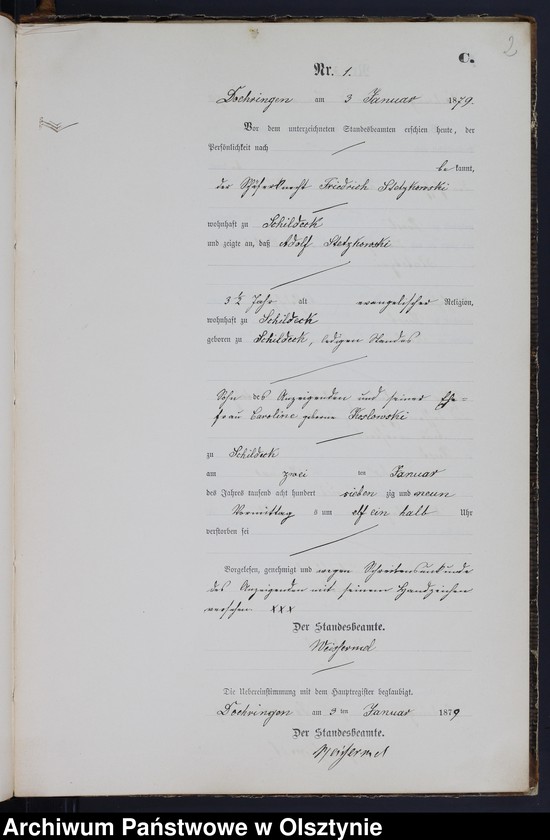 2
C.
Nr. 1.
Doehringen am 3 Januar 1879.
Vor dem unterzeichneten Standesbeamten erschien heute, der
Persönlichkeit nach
be kannt,
der Schäferknecht Friedrich Stetzkowski
wohnhaft zu Schildeck
und zeigte an, daß Adolf Stetzkowski
3 1/2 Jahr alt evangelischer Religion,
wohnhaft zu Schildeck
geboren zu Schildeck, ledigen Standes
Sohn des Anzeigenden und seiner Ehe=
frau Caroline geborne Koslowski
zu Schildeck
am zwei ten Januar
des Jahres tausend acht hundert sieben zig und neun
Vormittag s um elf ein halb Uhr
verstorben sei
Vorgelesen, genehmigt und wegen Schreibensunkunde
des Anzeigenden mit seinem Handzeichen
versehen xxx
Der Standesbeamte.
Weissermel
Die Uebereinstimmung mit dem Hauptregister beglaubigt.
Doehringen am 3 ten Januar 1879
Der Standesbeamte.
Weissermel
Archiwum Państwowe w Olsztynie